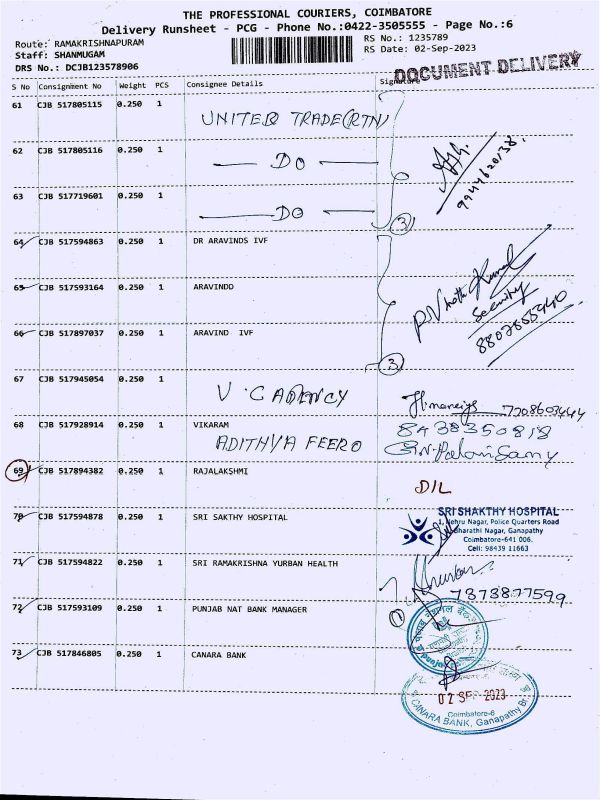 THE PROFESSIONAL COURIERS, COIMBATORE
Delivery Runsheet - PCG - Phone No.:0422-3505555 - Page No.:6
Route: RAMAKRISHNAPURAM
RS No.: 1235789
Staff: SHANMUGAM
RS Date: 02-Sep-2023
DRS No.: DCJB123578906
DOCUMENT DELIVERY
S No Consignment No Weight PCS Consignee Details Signature
61 CJB 517805115 0.250 1 UNITED TRADE(RTN)
62 CJB 517805116 0.250 1 DO
9944620138
63 CJB 517719601 0.250 1 DO
3
64 CJB 517594863 0.250 1 DR ARAVINDS IVF
65 CJB 517593164 0.250 1 ARAVINDD
Security
66 CJB 517897037 0.250 1 ARAVIND IVF
3
67 CJB 517945054 0.250 1 V. C AGENCY
7708603444
68 CJB 517928914 0.250 1 VIKARAM
8438350818
ADITHYA FEERO
69 CJB 517894382 0.250 1 RAJALAKSHMI
D/L
70 CJB 517594878 0.250 1 SRI SAKTHY HOSPITAL
SRI SHAKTHY HOSPITAL
1, Nehru Nagar, Police Quarters Road
Bharathi Nagar, Ganapathy
Coimbatore-641 006.
Cell: 98439 11663
71 CJB 517594822 0.250 1 SRI RAMAKRISHNA YURBAN HEALTH
7373877599
72 CJB 517593109 0.250 1 PUNJAB NAT BANK MANAGER
1
73 CJB 517846805 0.250 1 CANARA BANK
02 SEP 2023
Coimbatore-6
CANARA BANK, Ganapathy Br.